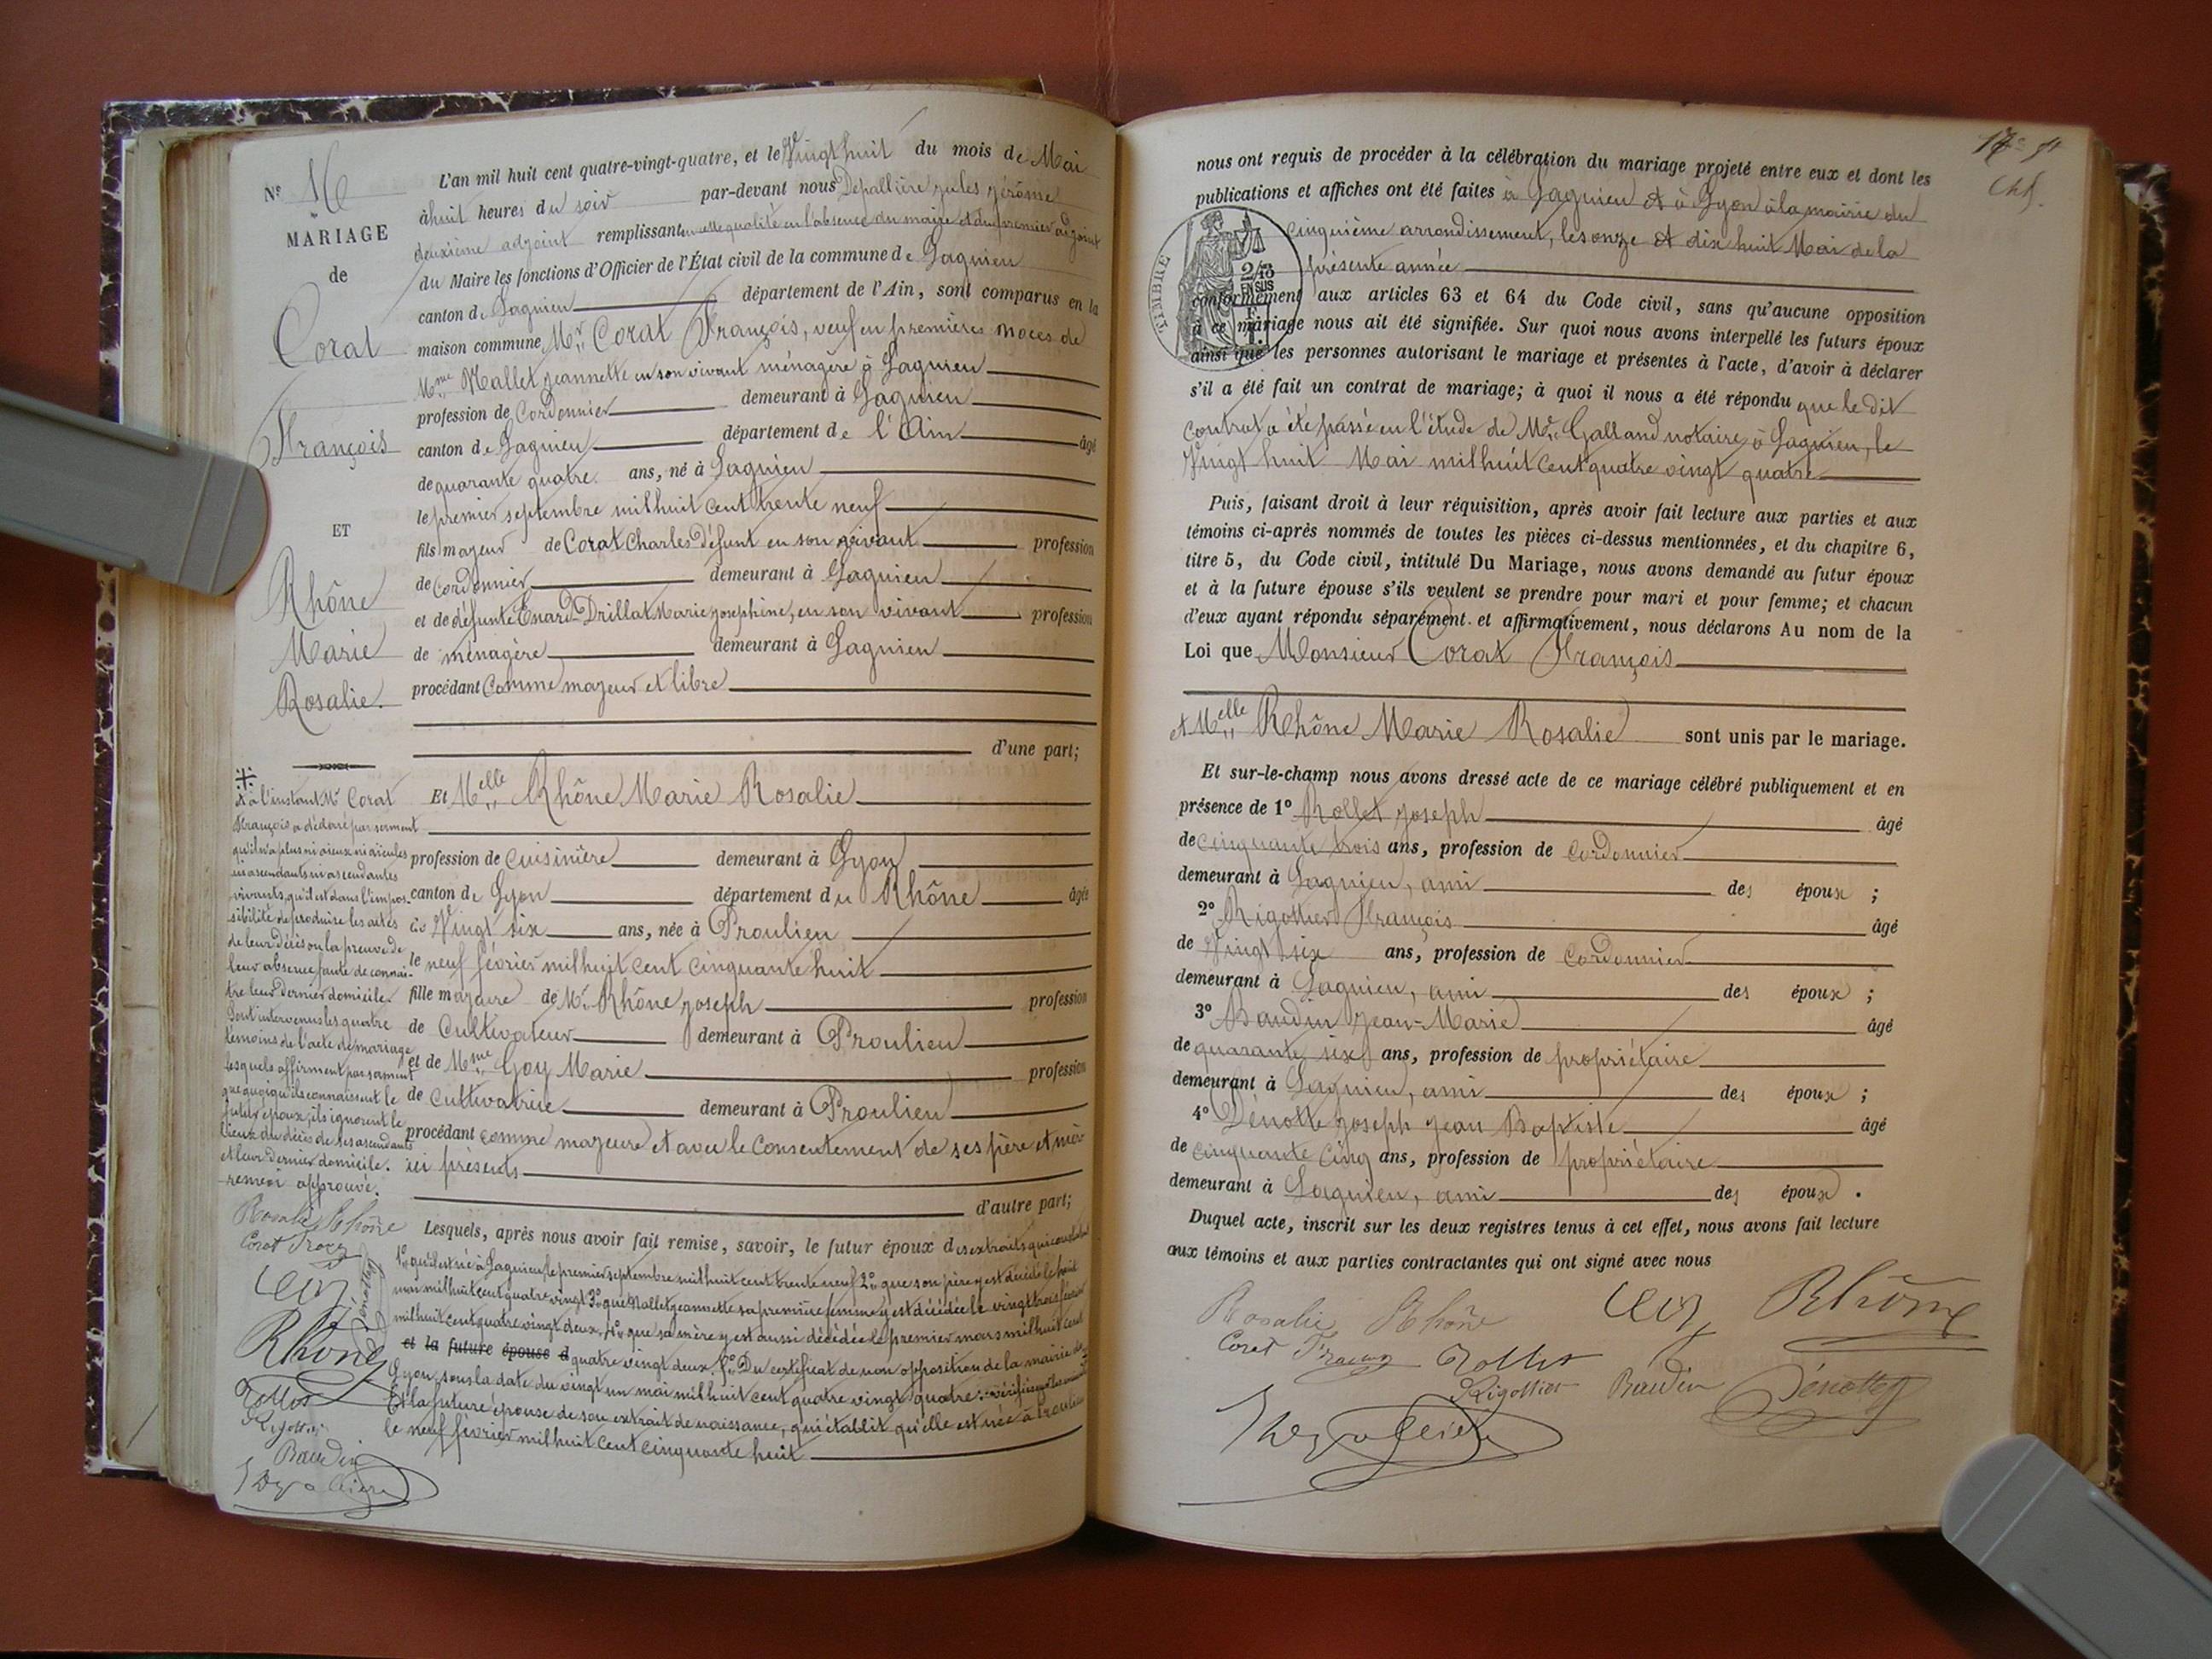 N° 16
MARIAGE
de
Corat
François
ET
Rhône
Marie
Rosalie.
L'an mil huit cent quatre-vingt-quatre, et le Vingt huit du mois de Mai
à huit heures du soir par-devant nous Depallière jules jérôme
deuxième adjoint remplissant en cette qualité en l'absence du maire et du premier adjoint
du Maire les fonctions d'Officier de l'État civil de la commune de Lagnieu
canton de Lagnieu département de l'Ain, sont comparus en la
maison commune Mr Corat François, veuf en premières noces de
Mme Mallet jeannette en son vivant ménagère à Lagnieu
profession de Cordonnier demeurant à Lagnieu
canton de Lagnieu département de l'Ain âgé
de quarante quatre ans, né à Lagnieu
le premier septembre mil huit cent trente neuf
fils majeur de Corat Charles Défunt en son vivant profession
de cordonnier demeurant à Lagnieu
et de défunte Enard-Drillat Marie josephine, en son vivant profession
de ménagère demeurant à Lagnieu
procédant comme majeur et libre
d'une part;
Et Melle Rhône Marie Rosalie
profession de cuisinière demeurant à Lyon
canton de Lyon département du Rhône âgée
de Vingt six ans, née à Proulieu
le neuf février mil huit cent cinquante huit
fille majeure de Mr Rhône joseph profession
de Cultivateur demeurant à Proulieu
et de Mme Goy Marie profession
de cultivatrice demeurant à Proulieu
procédant comme majeure et avec le consentement de ses père et mère
ici présents
d'autre part;
Lesquels, après nous avoir fait remise, savoir, le futur époux des extraits qui constatent
1° qu'il est né à Lagnieu le premier septembre mil huit cent trente neuf 2° que son père y est décédé le huit
mai mil huit cent quatre vingt 3° que Mallet jeannette sa première femme y est décédée le vingt trois février
mil huit cent quatre vingt deux, 4° que sa mère y est aussi décédée le premier mars mil huit cent
et la future épouse d quatre vingt deux 5° Du certificat de non opposition de la mairie de
Lyon sous la date du vingt un mai mil huit cent quatre vingt quatre
Et la future épouse de son extrait de naissance, qui établit qu'elle est née à Proulieu
le neuf février mil huit cent cinquante huit
Et à l'instant Mr Corat
François a déclaré par serment
qu'il n'a plus ni aïeux ni aïeules
ni ascendants ni ascendantes
vivants, qu'il est dans l'impos-
sibilité de produire les actes
de leur décès ou la preuve de
leur absence faute de connaî-
tre leur dernier domicile.
Sont intervenus les quatre
témoins de l'acte de mariage
lesquels affirment par serment
que quoiqu'ils connaissent le
futur époux, ils ignorent le
lieux du décès de ses ascendants
et leur dernier domicile.
renvoi approuvé.
Rosalie Rhône
Corat
Goy
Dénotte
Rhône
Rollet
Rigottier
Baudin
Depallière
nous ont requis de procéder à la célébration du mariage projeté entre eux et dont les
publications et affiches ont été faites à Lagnieu et à Lyon à la mairie du
cinquième arrondissement, les onze et dix huit Mai de la
présente année
TIMBRE
2/10
EN SUS
conformément aux articles 63 et 64 du Code civil, sans qu'aucune opposition
à ce mariage nous ait été signifiée. Sur quoi nous avons interpellé les futurs époux
ainsi que les personnes autorisant le mariage et présentes à l'acte, d'avoir à déclarer
s'il a été fait un contrat de mariage; à quoi il nous a été répondu que le dit
contrat a été passé en l'étude de Me Galland notaire à Lagnieu, le
Vingt huit Mai mil huit cent quatre vingt quatre
Puis, faisant droit à leur réquisition, après avoir fait lecture aux parties et aux
témoins ci-après nommés de toutes les pièces ci-dessus mentionnées, et du chapitre 6,
titre 5, du Code civil, intitulé Du Mariage, nous avons demandé au futur époux
et à la future épouse s'ils veulent se prendre pour mari et pour femme; et chacun
d'eux ayant répondu séparément et affirmativement, nous déclarons Au nom de la
Loi que Monsieur Corat François
et Melle Rhône Marie Rosalie sont unis par le mariage.
Et sur-le-champ nous avons dressé acte de ce mariage célébré publiquement et en
présence de 1° Rollet joseph âgé
de cinquante trois ans, profession de Cordonnier
demeurant à Lagnieu, ami des époux ;
2° Rigottier François âgé
de Vingt six ans, profession de Cordonnier
demeurant à Lagnieu, ami des époux ;
3° Baudin Jean-Marie âgé
de quarante six ans, profession de propriétaire
demeurant à Lagnieu, ami des époux ;
4° Dénotte joseph jean Baptiste âgé
de cinquante cinq ans, profession de propriétaire
demeurant à Lagnieu, ami des époux .
Duquel acte, inscrit sur les deux registres tenus à cet effet, nous avons fait lecture
aux témoins et aux parties contractantes qui ont signé avec nous
Rosalie Rhône Goy Rhône
Corat Rollet
Rigottier Baudin Dénotte
Depallière